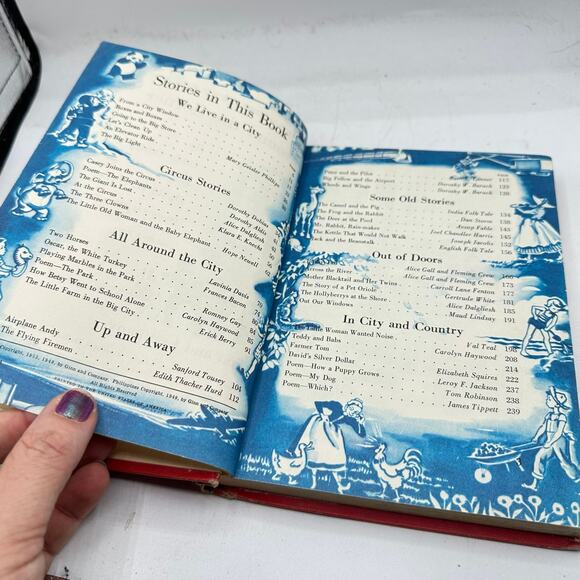 Stories in This Book
We Live in a City
From a City Window
Boxes and Boxes
Going to the Big Store
Let's Clean Up
An Elevator Ride
The Big Light
Mary Geisler Phillips
Circus Stories
Casey Joins the Circus
Poem—The Elephants
The Giant Is Lost
At the Circus
The Three Clowns
The Little Old Woman and the Baby Elephant
Dorothy
Dorothy Aldis
Alice Dalgliesh
Klara E. Knecht
Hope Newell
All Around the City
Two Horses
Oscar, the White Turkey
Playing Marbles in the Park
Poem—The Park
How Betsy Went to School Alone
The Little Farm in the Big City
Lavinia Davis
Frances Bacon
Romney Gay
Carolyn Haywood
Erick Berry
Up and Away
Airplane Andy Sanford Tousey 104
The Flying Firemen Edith Thacher Hurd 112
All Rights Reserved
PRINTED IN THE UNITED STATES OF AMERICA
Peter and the Pilot 117
Big Fellow and the Airport Dorothy W. Baruch 123
Wheels and Wings Dorothy W. Baruch 138
Some Old Stories
The Camel and the Pig India Folk Tale 134
The Frog and the Rabbit
The Deer at the Pool Aesop Fable
Mr. Rabbit, Rain-maker Joel Chandler Harris
The Kettle That Would Not Walk Joseph Jacobs
Jack and the Beanstalk English Folk Tale 156
Out of Doors
Across the River Alice Gall and Fleming Crew 166
Mother Blacktail and Her Twins Alice Gall and Fleming Crew 173
The Story of a Pet Oriole Carroll Lane Fenton 177
The Hollyberrys at the Shore Gertrude White 181
Out Our Windows Alice Dalgliesh 185
Maud Lindsay 191
In City and Country
The Little Woman Wanted Noise Val Teal 198
Teddy and Babs Carolyn Haywood 208
Farmer Tom 214
David's Silver Dollar Elizabeth Squires 222
Poem—How a Puppy Grows Leroy F. Jackson 237
Poem—My Dog Tom Robinson 238
Poem—Which? James Tippett 239